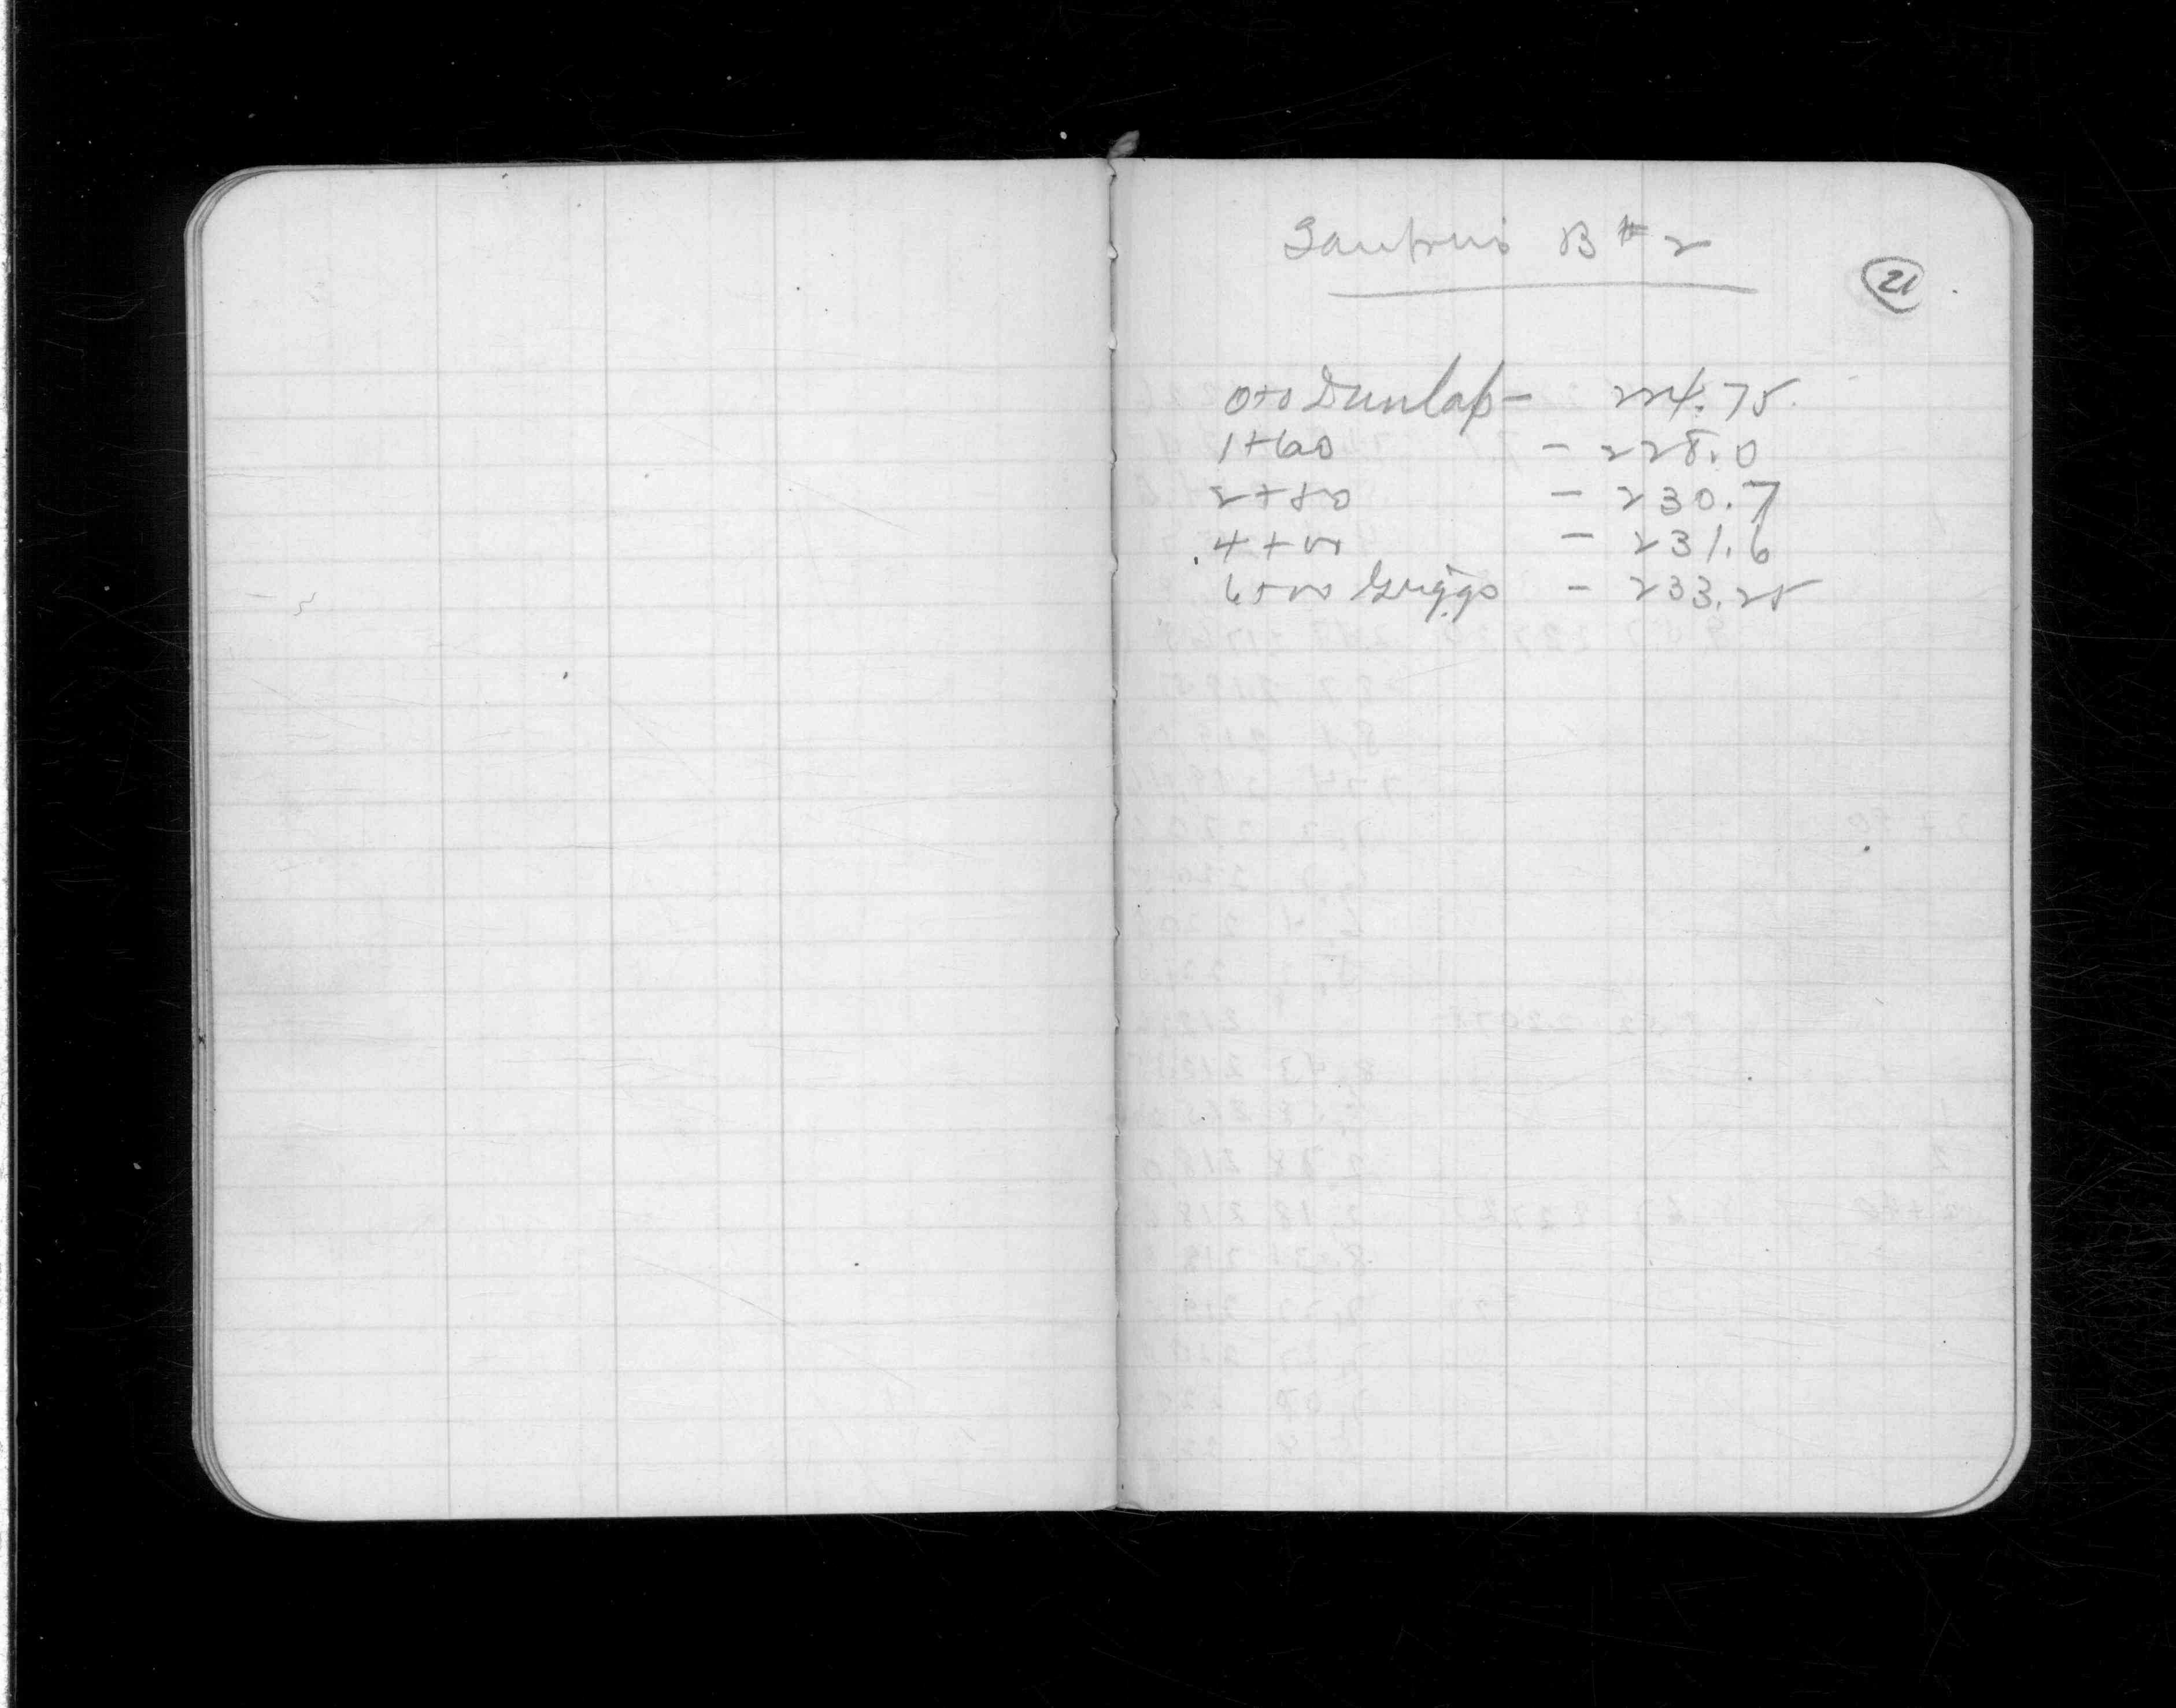 B # 2
21
0+0 Dunlap - 224.75
1+60 - 228.0
2+80 - 230.7
4+00 - 231.6
6+00 Griggs - 233.25